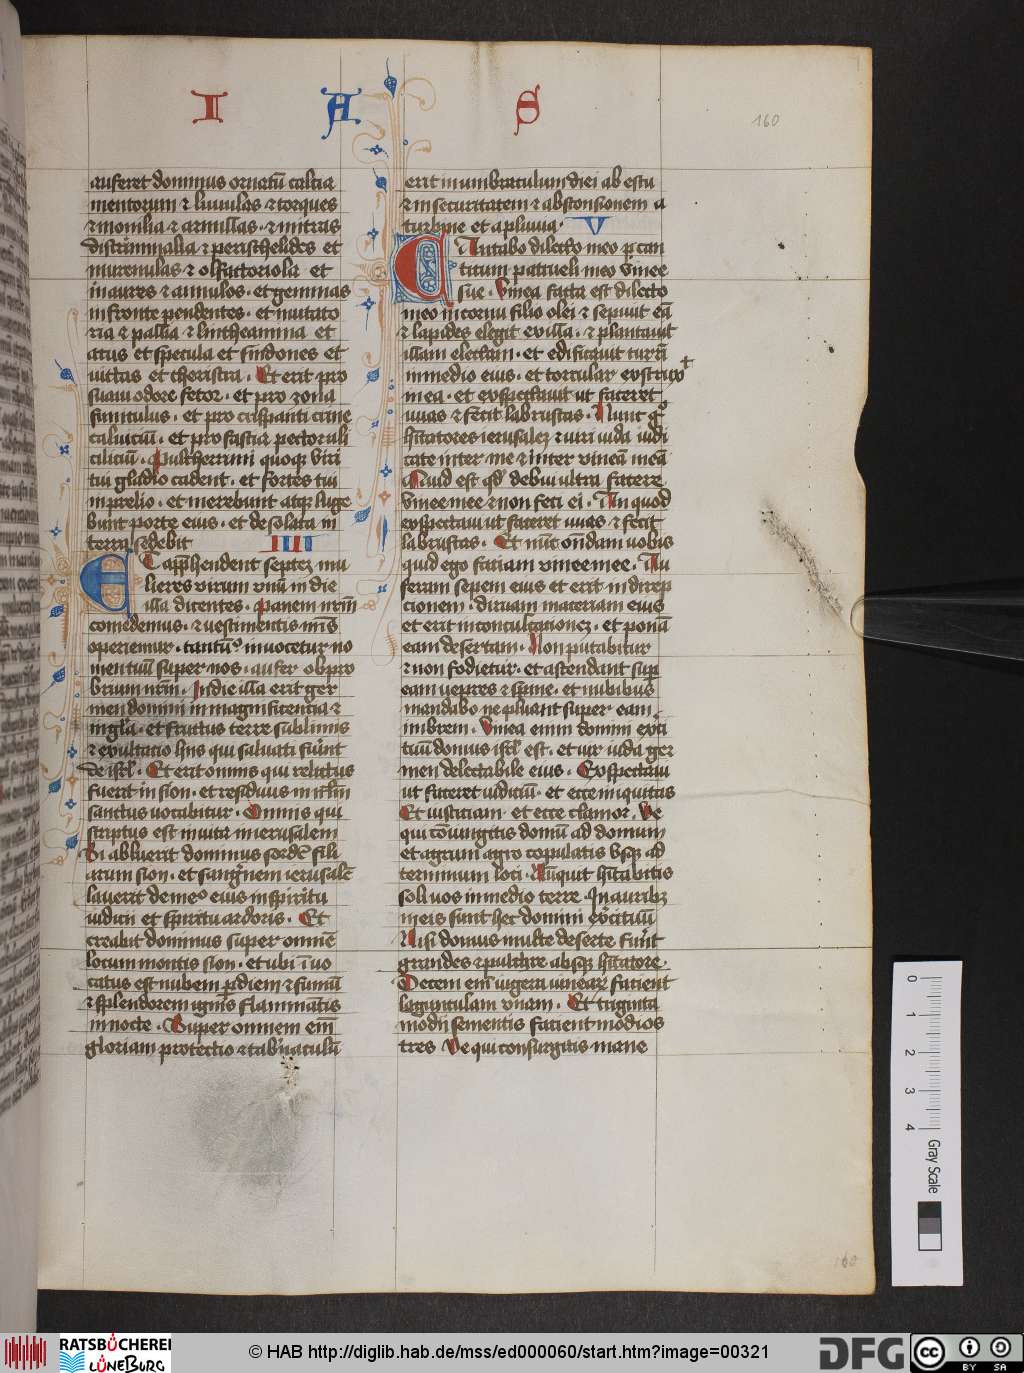 I A S
160
auferet dominus ornatū calcia
mentorum ⁊ lunulas ⁊ torques
⁊ monilia ⁊ armillas ⁊ mitras
discriminalia ⁊ perischelides et
murenulas ⁊ olfactoriola et
inaures ⁊ annulos · et gemmas
in fronte pendentes · et mutato
ria ⁊ pallia ⁊ lintheamina et
acus et specula et sindones et
vittas et theristra · Et erit pro
suavi odore fetor · et pro zona
funiculus · et pro crispanti crine
caluiciū · et pro fascia pectorali
ciliciū · Pulcherrimi quoqꝫ viri
tui gladio cadent · et fortes tui
in prelio · et merebunt atqꝫ luge
bunt porte eius · et desolata in
terra sedebit IIII
Et apprehendent septeꝫ mu
lieres virum vnū in die
illa dicentes · Panem nr̄m
comedemus · ⁊ vestimentis nr̄is
operiemur · tantūꝰ inuocetur no
men tuū super nos · aufer obpro
brium nr̄m · In die illa erit ger
men domini in magnificentia ⁊
in gl̄ia · et fructus terre sublimis
⁊ exultatio hijs qui saluati fuerint
de isrl̄ · Et erit omnis qui relictus
fuerit in sion · et residuus in irl̄m
sanctus uocabitur · Omnis qui
scriptus est in uita in ierusalem
Si abluerit dominus sordes fili
arum sion · et sanguinem ierusalē
lauerit de meᵒ eius in spiritu
iudicii et spiritu ardoris · Et
creabit dominus super omnē
locum montis sion · et ubi īuo
catus est nubem p diem ⁊ fumū
⁊ splendorem ignis flammantis
in nocte · Super omnem em̄
gloriam protectio ⁊ tab̄naculū
erit in umbraculum diei ab estu
⁊ in securitatem ⁊ absconsionem a
turbine et a pluuia · V
CAntabo dilecto meo p can
ticum patrueli meo vinee
sue · Vinea facta est dilecto
meo in cornu filio olei ⁊ sepiuit eā
⁊ lapides elegit ex illa · ⁊ plantauit
illam electam · et edificauit turrī
in medio eius · et torcular exstruxᵗ
in ea · et exspectauit ut faceret
uuas ⁊ fecit labruscas · Nunc gͦ
hītatores ierusaleꝫ ⁊ uiri iuda iudi
cate inter me ⁊ inter vineā meā
Quid est qd̄ debui ultra facere
vinee mee ⁊ non feci ei · An quod
exspectaui ut faceret uuas ⁊ fecit
labruscas · Et nūc on̄dam uobis
quid ego faciam vinee mee · Au
feram sepem eius et erit in direp
cionem · diruam maceriam eius
et erit in conculcationeꝫ · et ponā
eam desertam · Non putabitur
⁊ non fodietur · et ascendant sup̄
eam uepres ⁊ spine · et nubibus
mandabo ne pluant super eam
imbrem · Vinea enim domini exci
tuū domus isrl̄ est · et uir iuda ger
men delectabile eius · Exspectaui
ut faceret iudiciū · et ecce iniquitas
Et iusticiam · et ecce clamor · Ve
qui cōiungitis domū ad domum
et agrum agro copulatis vsqꝫ ad
terminum loci · Nūquit hītabitis
soli uos in medio terre · In auribꝫ
meis sunt hec domini exercituū
Nisi domus multe deserte fuerint
grandes ⁊ pulchre absqꝫ hītatore ·
Decem em̄ iugera uinearꝫ facient
lagunculam vnam · Et triginta
modii sementis facient modios
tres Ve qui consurgitis mane
160
0 1 2 3 4
Gray Scale
RATSBÜCHEREI
LÜNEBURG
© HAB http://diglib.hab.de/mss/ed000060/start.htm?image=00321
DFG
cc BY SA